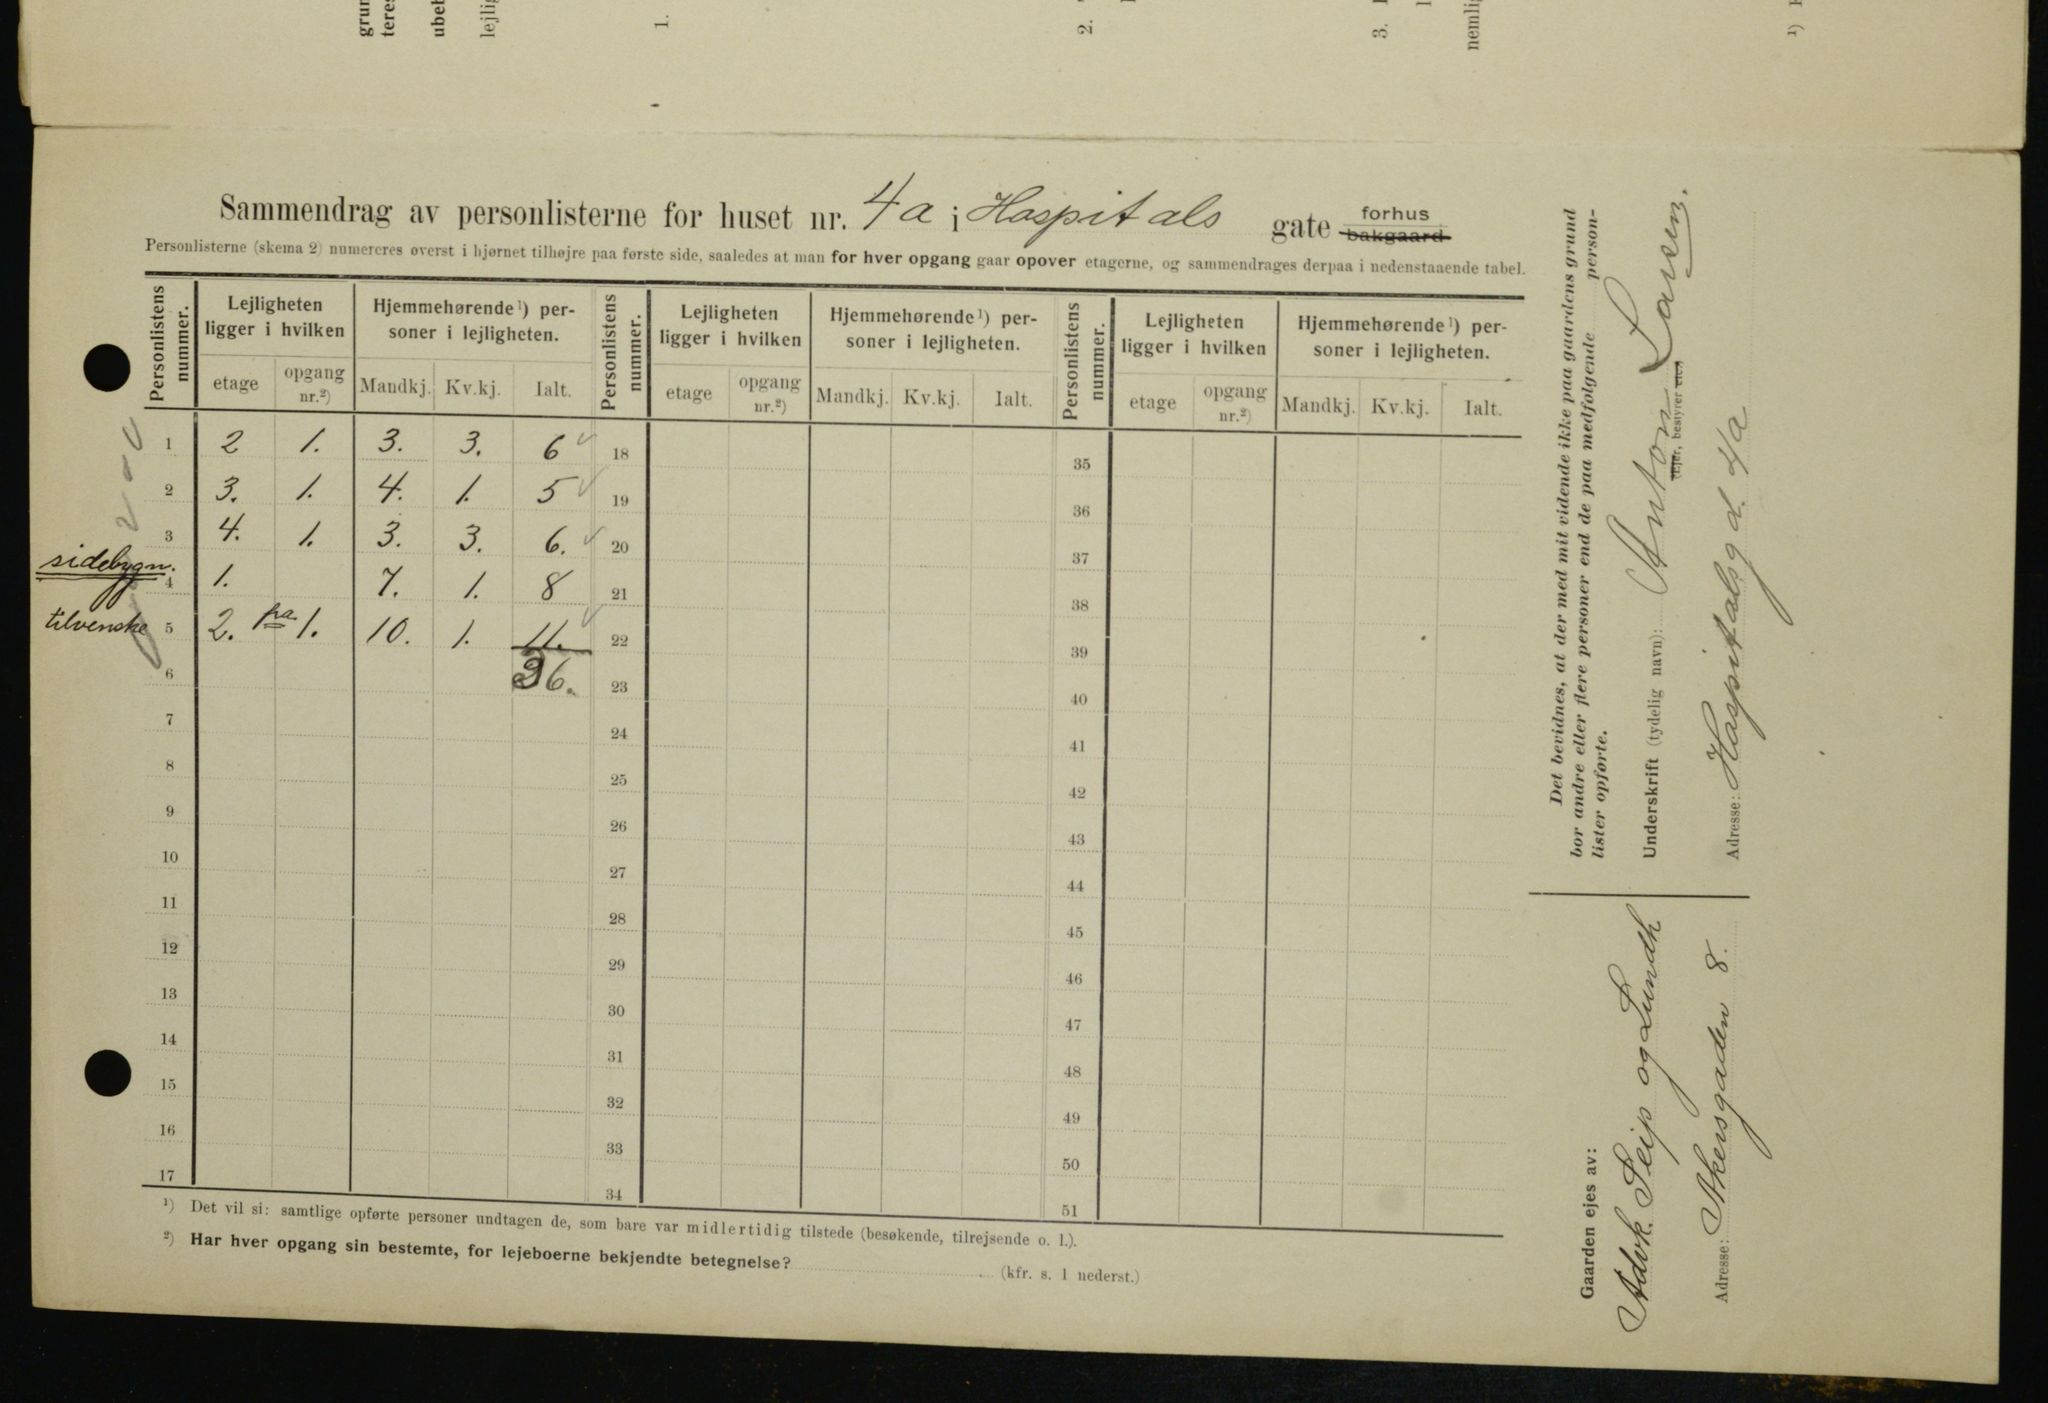 grun
teres
ubeb
lejlig
1.
2.
3.
nemlig
¹)
Sammendrag av personlisterne for huset nr. 4a i Hospitals gate forhus
bakgaard
Personlisterne (skema 2) numereres øverst i hjørnet tilhøjre paa første side, saaledes at man for hver opgang gaar opover etagerne, og sammendrages derpaa i nedenstaaende tabel.
Personlistens nummer. Lejligheten ligger i hvilken Hjemmehørende¹) personer i lejligheten. Personlistens nummer. Lejligheten ligger i hvilken Hjemmehørende¹) personer i lejligheten. Personlistens nummer. Lejligheten ligger i hvilken Hjemmehørende¹) personer i lejligheten.
etage opgang nr.²) Mandkj. Kv.kj. Ialt. etage opgang nr.²) Mandkj. Kv.kj. Ialt. etage opgang nr.²) Mandkj. Kv.kj. Ialt.
1 2 1. 3. 3. 6 18 35
2 3. 1. 4. 1. 5 19 36
3 4. 1. 3. 3. 6. 20 37
sidebygn.
4 1. 7. 1. 8 21 38
tilvenske 5 2. fra 1. 10. 1. 11. 22 39
6 36. 23 40
7 24 41
8 25 42
9 26 43
10 27 44
11 28 45
12 29 46
13 30 47
14 31 48
15 32 49
16 33 50
17 34 51
¹) Det vil si: samtlige opførte personer undtagen de, som bare var midlertidig tilstede (besøkende, tilrejsende o. l.).
²) Har hver opgang sin bestemte, for lejeboerne bekjendte betegnelse? (kfr. s. 1 nederst.)
Det bevidnes, at der med mit vidende ikke paa gaardens grund
bor andre eller flere personer end de paa medfølgende person-
lister opførte.
Underskrift (tydelig navn): Anton Larsen.
(Ejer, bestyrer etc.)
Adresse: Hospitalsgd. 4a
Gaarden ejes av:
Advk. Seip og Lundh
Adresse: Akersgaden 8.